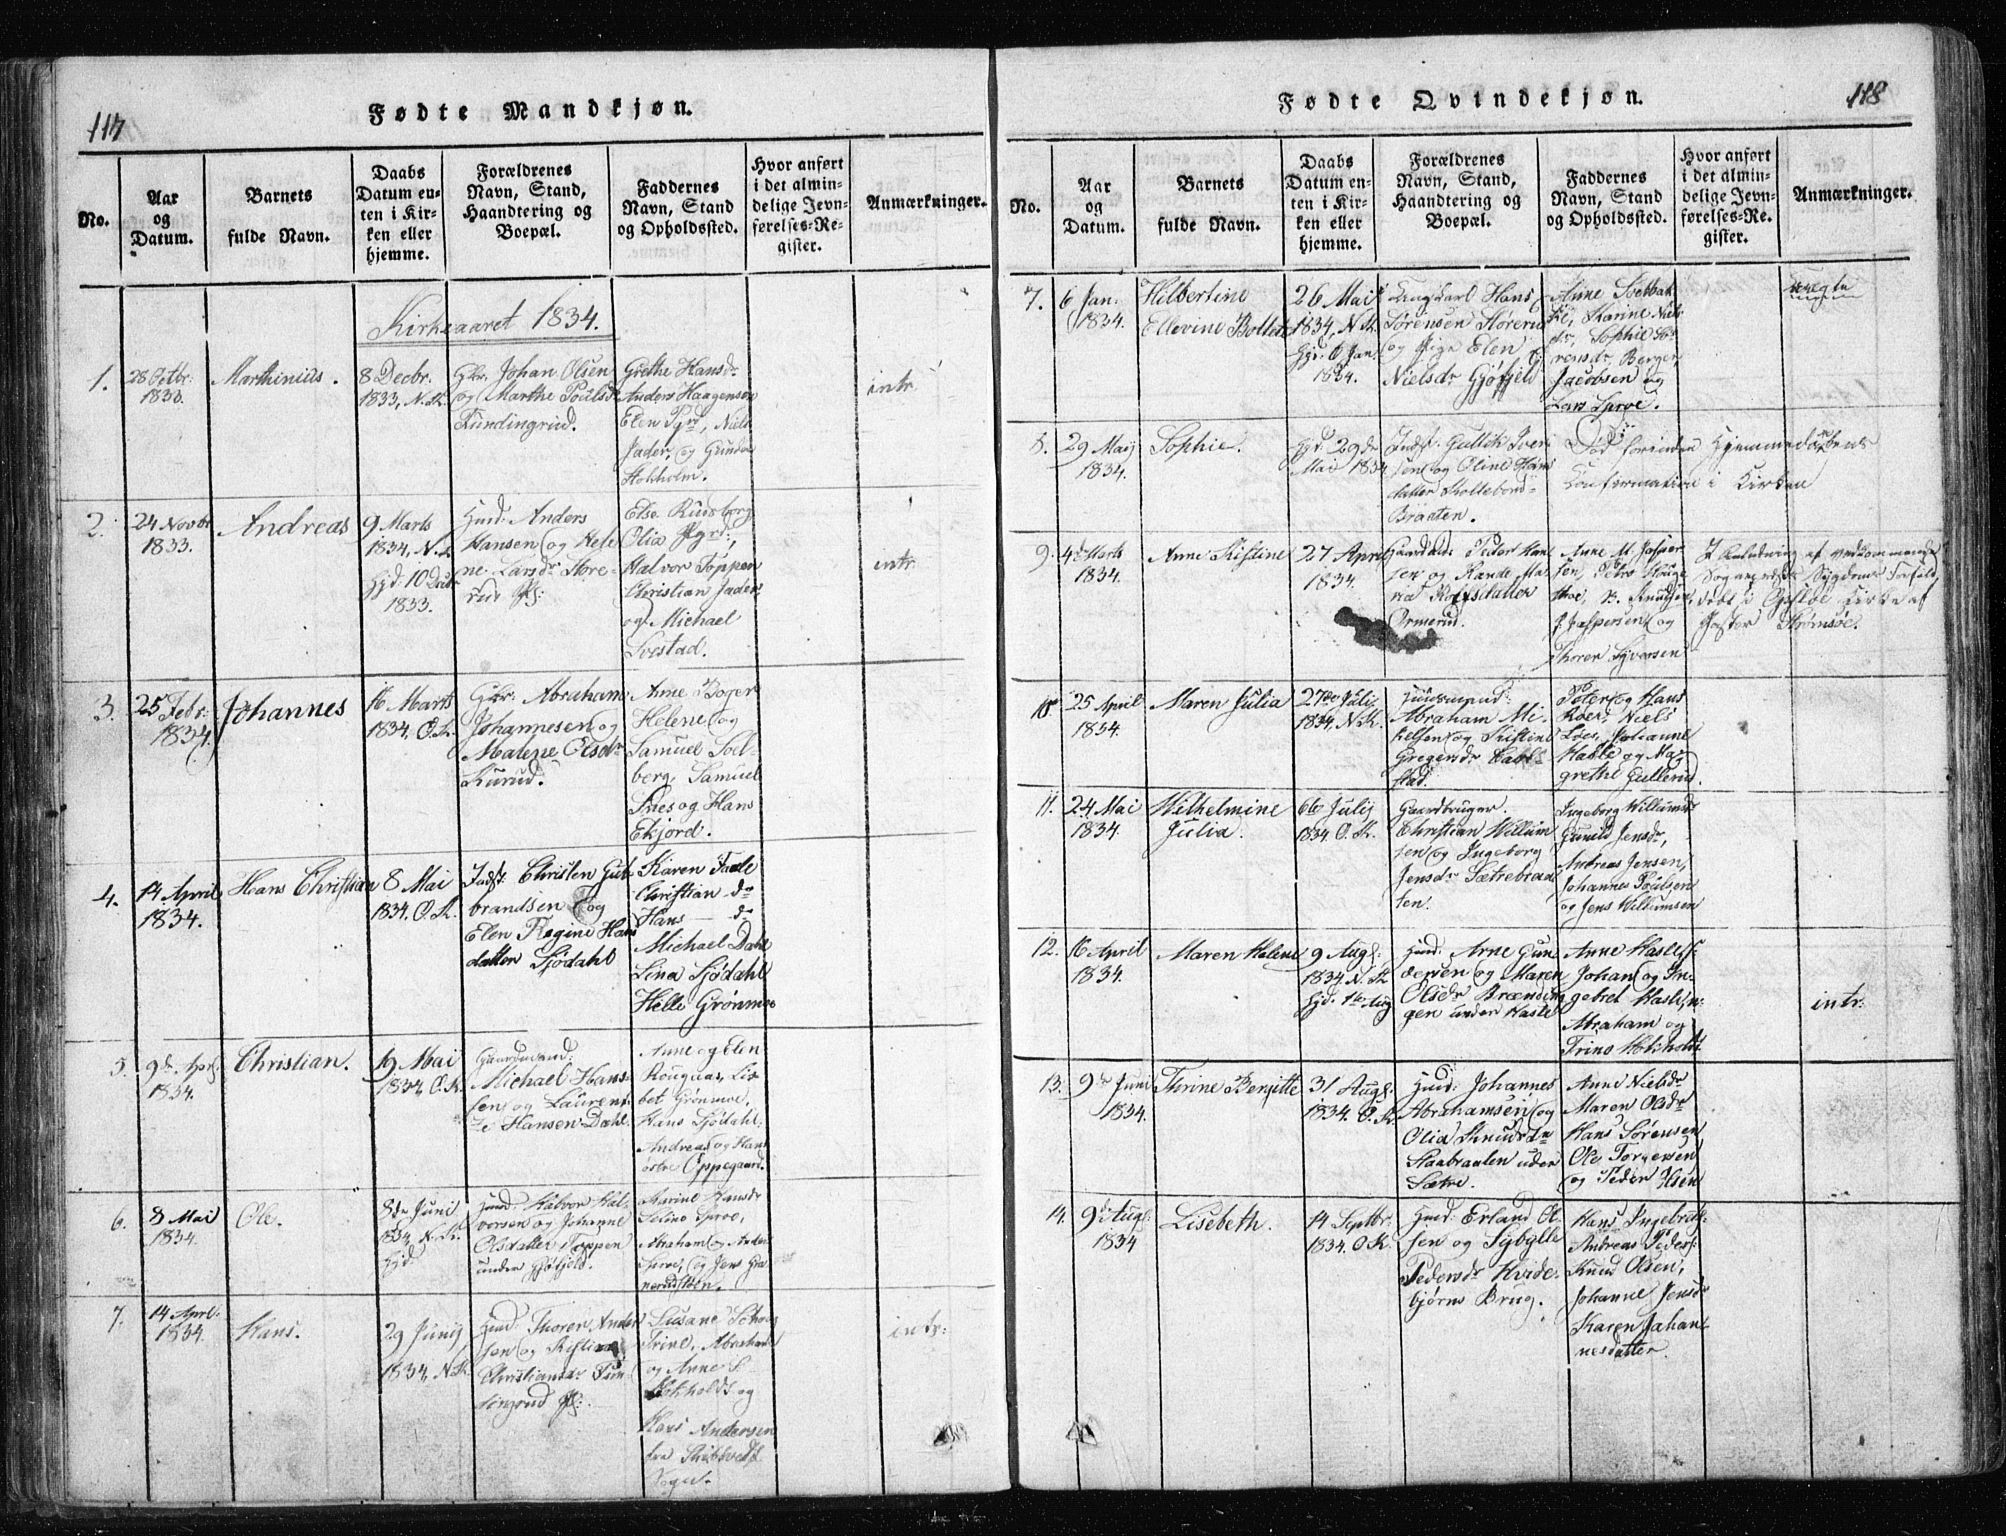 117
Fødte Mandkjøn.
No.
Aar
og
Datum.
Barnets
fulde Navn.
Daabs
Datum en-
ten i Kir-
ken eller
hjemme.
Forældrenes
Navn, Stand,
Haandtering og
Boepæl.
Faddernes
Navn, Stand
og Opholdssted.
Hvor anført
i det almin-
delige Jevn-
førelses-Re-
gister.
Anmærkninger.
Kirkeaaret 1834.
1.
28 Octbr.
1833.
Marthinius.
8 Decbr.
1833, N.K.
Gbr. Johan Olsen
og Marthe Poulsdr
Grethe Hansdr
Anders Haagensen
Jader og Gunder
Stokholm.
intr.
2.
24 Novbr
1833.
Andreas
9 Marts
1834, N.K.
Hjd. 10 Decbr
1833.
Huusd: Anders
Hansen og Hele
ne Larsdr Store-
rud
Else Rudsberg
Halvor Toppen
Christian Jader
og Michael
Soestad.
intr
3.
25 Febr.
1834.
Johannes
16 Marts
1834. O.K.
Gbr: Abraham
Johannesen og
Malene Olsdr
Kurud.
Anne Boger
Helene og
Samuel Sol-
berg, Samuel
og Hans
Ekjord.
4.
14 April
1834.
Hans Christian
8 Mai
1834. O.K.
Indst: Christen Gul-
brandsen og
Elen Regine Hans
datter Sjødahl
Karen Taale
Christian do
Hans — do
Michael Dahl
Lina Sjødahl
Helle Grønmoe
5.
9de Apr.
1834.
Christian.
19 Mai
1834, O.K.
Gaardmand:
Michael Hans-
sen og Laurent-
ze Hansen Dahl.
Anne og Elen
Rougaas, Lis-
bet Grønmoe,
Hans Sjödahl,
Andreas og Hans
østre Oppegaard.
6.
8 Mai
1834.
Ole.
8de Juni
1834, N.K.
Hjd.
Huusd: Halvor Hal-
vorsen og Johanne
Olsdatter Toppen
under Gjøfjeld.
Marine Hansdr
Seline Sproe,
Abraham og Anders
Sproe, og Jens Gra-
nerudstøen.
7.
14 Apr.
1834.
Hans.
29 Junij
1834, N.K.
Huusd: Thoren Ander
sen og Kistine
Christiansdr
Susane
Trine, Abraham
og Anne S.
Stokholdt og
Hans Andersen
fra
Sogn.
intr:
118
Fødte Qvindekjøn.
No.
Aar
og
Datum.
Barnets
fulde Navn.
Daabs
Datum en-
ten i Kir-
ken eller
hjemme.
Forældrenes
Navn, Stand,
Haandtering og
Boepæl.
Faddernes
Navn, Stand
og Opholdssted.
Hvor anført
i det almin-
delige Jevn-
førelses-Re-
gister.
Anmærkninger.
7.
6 Jan.
1834.
Hilbertine
Ellevine Bollete
26 Mai
1834. N.K.
Hjd. 6 Jan.
1834.
Ungkarl Hans
Sørensen Storerud
og Pige Elen
Nielsdr Gjøfjeld
Anne Solbak
Karine Niels
dr, Sophie Sø-
rensdr, Berger
Jacobsen og
Lars Sproe.
uægte
8.
29 Maij
1834.
Sophie.
Hjd. 29de
Mai 1834
Indst. Gullik Iver
sen og Oline Hans
datter
Braaten.
Død forinden Hjemmedaabens
Confirmation i Kirken
9.
4de Marts
1834.
Anne Kistine
27 April
1834.
Peder Han
sen og Rande Ma-
ria Rolfsdatter
Ormerud.
Anne M. Jesper
sen, Petro Houge
B. Knudsen,
J. Jespersen og
Thoren Syversen
I Anledning af vedkommende
Sogneprests Sygdoms Forfald,
døbt i Opsloe Kirke af
Pastor Strømsøe.
10
25 April
1834.
Maren Julia
27de Julij
1834, N.K.
Huusmand:
Abraham Mi-
kelsen og Kistine
Gregersdr
stad.
Peter og Hans
Roer, Niels
Loes, Johanne
Hasle og Ma-
grethe Gullerud.
11.
24 Mai
1834.
Wilhelmine
Julia.
6te Julij
1834. O.K.
Gaardbruger.
Christian Willum
sen og Ingeborg
Jensdr Sætrebraa
ten.
Ingeborg Willumsdr
Gunild Jensdr,
Andreas Jensen,
Johannes Poulsen
og Jens Willumsen
12.
16 April
1834.
Maren Helene
9 Aug.
1834. N.K.
Hjd. 1te Aug
Huusd. Arne Gun
dersen og Maren
Olsdr Brænding
gen under Hasle
Anne Hasle,
Johan og In-
gebret Hasle,
Abraham og
Trine Stokholdt
intr.
13.
9de Juni
1834.
Thrine Bergitte
31 Aug.
1834. O.K.
Huusd: Johannes
Abrahamsen og
Olia Knudsdr
Staabraaten under
Sætre.
Anne Nielsdr
Maren Olsdr
Hans Sørensen
Ole Torgersen
og Peder Olsen
14.
9de Aug.
1834
Lisebeth.
14 Septbr.
1834. O.K.
Huusd: Erland Ol-
sen og Sybylle
Pedersdr Hvide-
bjørns Brug.
Hans Ingebrets.
Andreas Peders:
Knud Olsen,
Johanne Jensdr
Karen Johan
nesdatter.